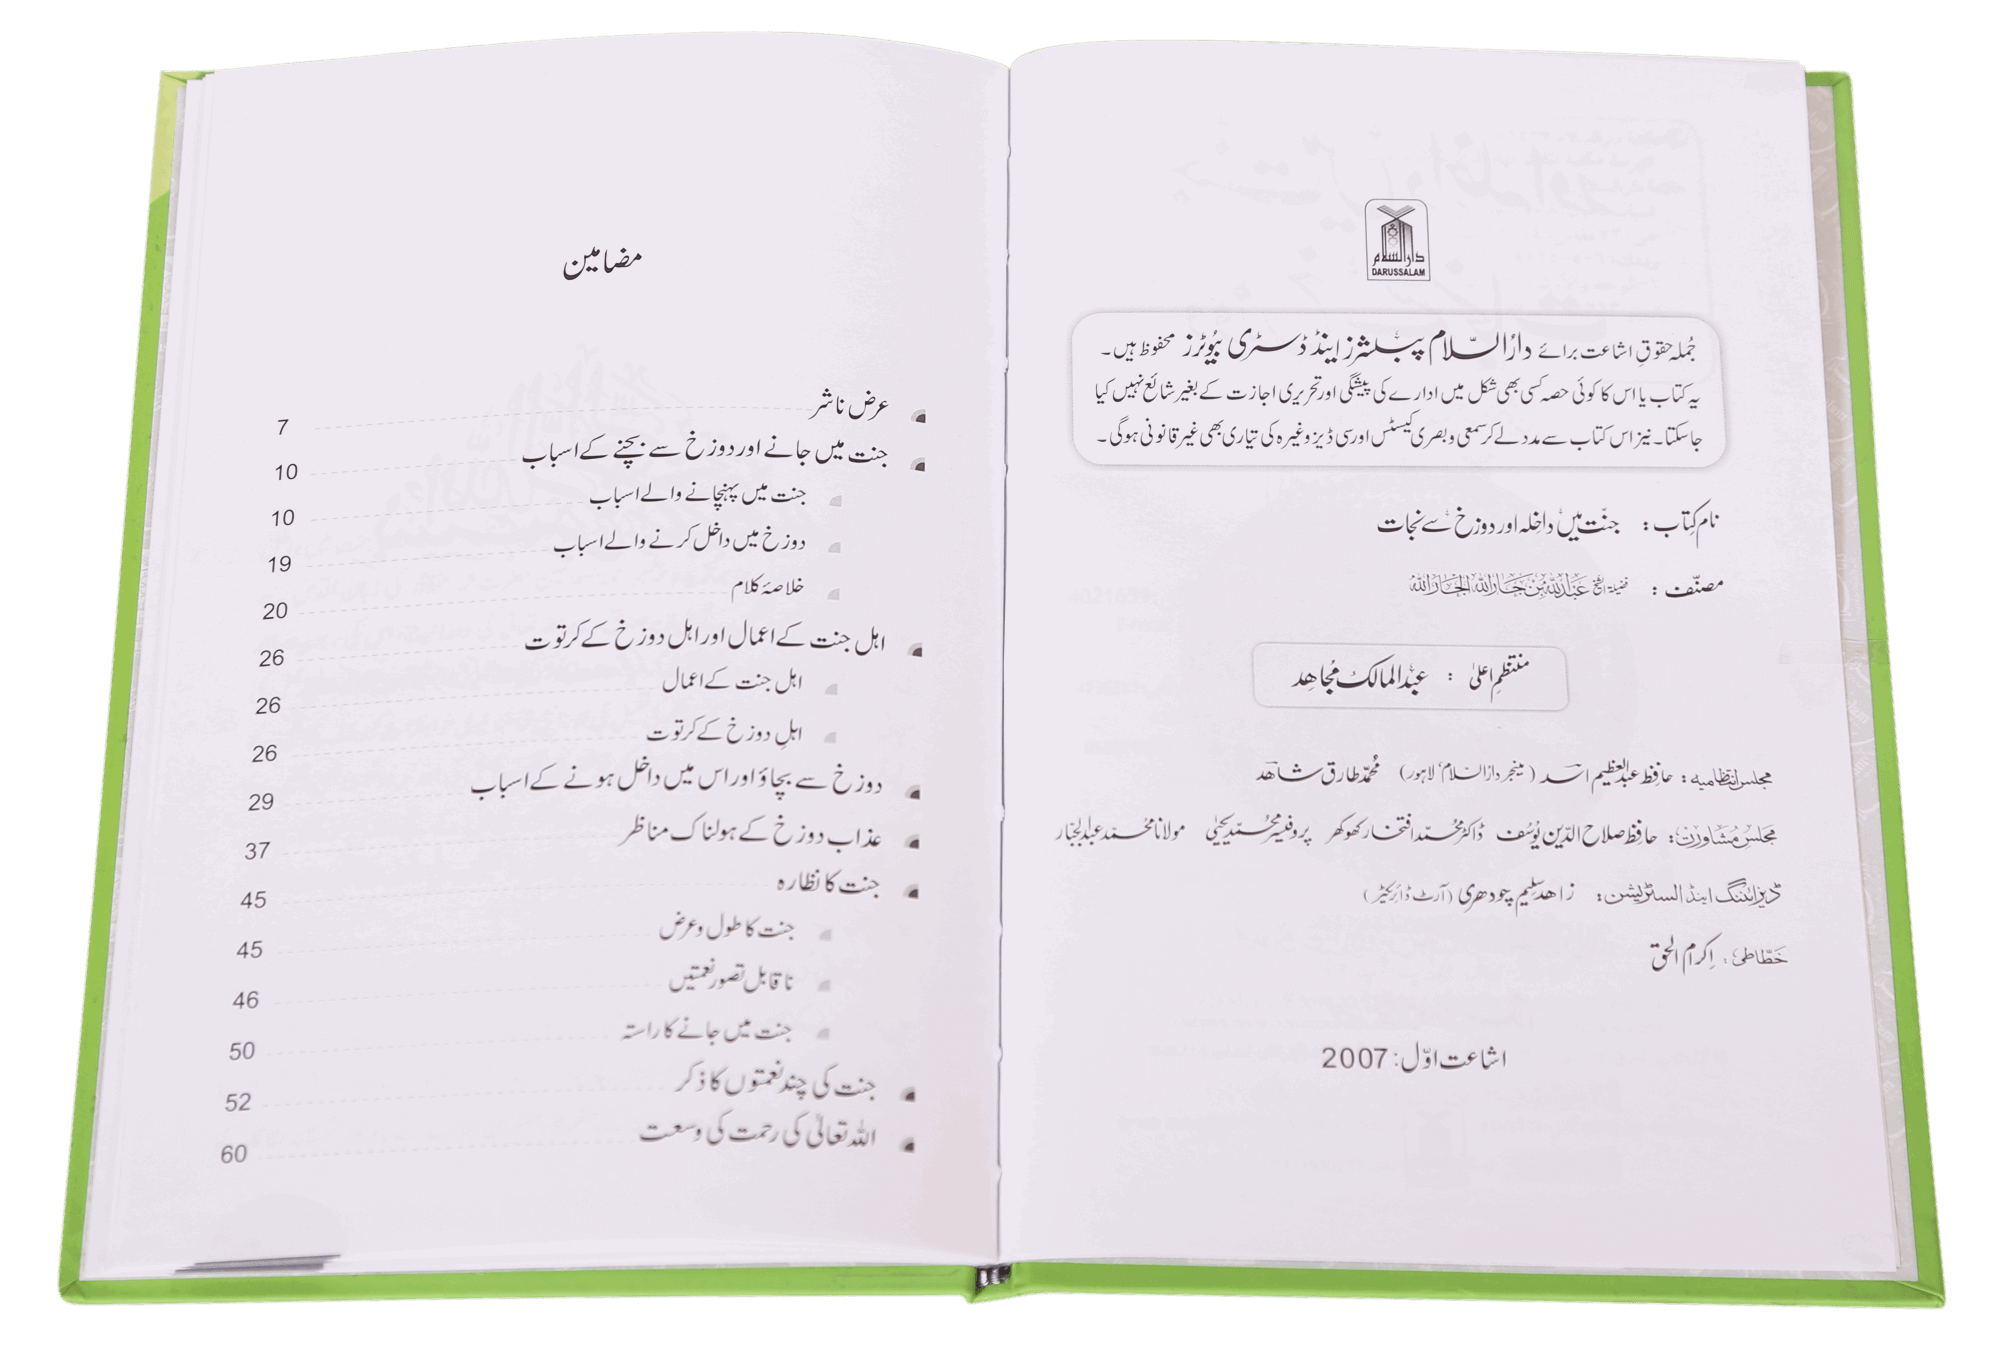 دارالسلام
DARUSSALAM
جُملہ حقوقِ اشاعت برائے دارُالسّلام پبلشرز اینڈ ڈسٹری بیوٹرز محفوظ ہیں۔
یہ کتاب یا اس کا کوئی حصہ کسی بھی شکل میں ادارے کی پیشگی اور تحریری اجازت کے بغیر شائع نہیں کیا
جاسکتا۔ نیز اس کتاب سے مدد لے کر سمعی و بصری کیسٹس اور سی ڈیز وغیرہ کی تیاری بھی غیر قانونی ہوگی۔
نام کتاب : جنّت میں داخلہ اور دوزخ سے نجات
مصنّف : فضیلۃ الشیخ عبداللہ بن جاراللہ الجاراللہ
منتظم اعلیٰ : عبدالمالک مُجاہد
مجلس انتظامیہ: حافظ عبدالعظیم اسد (مینجر دارالسلام، لاہور) محمّد طارق شاہد
مجلس مشاورت: حافظ صلاح الدّین یُوسف ڈاکٹر محمّد افتخار کھوکھر پروفیسر محمّد یحییٰ مولانا محمّد عبدالجبّار
ڈیزائننگ اینڈ السٹریشن: زاہد سلیم چودھری (آرٹ ڈائریکٹر)
خطّاطی: اِکرام الحق
اشاعت اوّل: 2007
مضامین
عرض ناشر 7
جنت میں جانے اور دوزخ سے بچنے کے اسباب 10
جنت میں پہنچانے والے اسباب 10
دوزخ میں داخل کرنے والے اسباب 19
خلاصۂ کلام 20
اہل جنت کے اعمال اور اہل دوزخ کے کرتوت 26
اہل جنت کے اعمال 26
اہلِ دوزخ کے کرتوت 26
دوزخ سے بچاؤ اور اس میں داخل ہونے کے اسباب 29
عذاب دوزخ کے ہولناک مناظر 37
جنت کا نظارہ 45
جنت کا طول و عرض 45
ناقابل تصور نعمتیں 46
جنت میں جانے کا راستہ 50
جنت کی چند نعمتوں کا ذکر 52
اللہ تعالیٰ کی رحمت کی وسعت 60